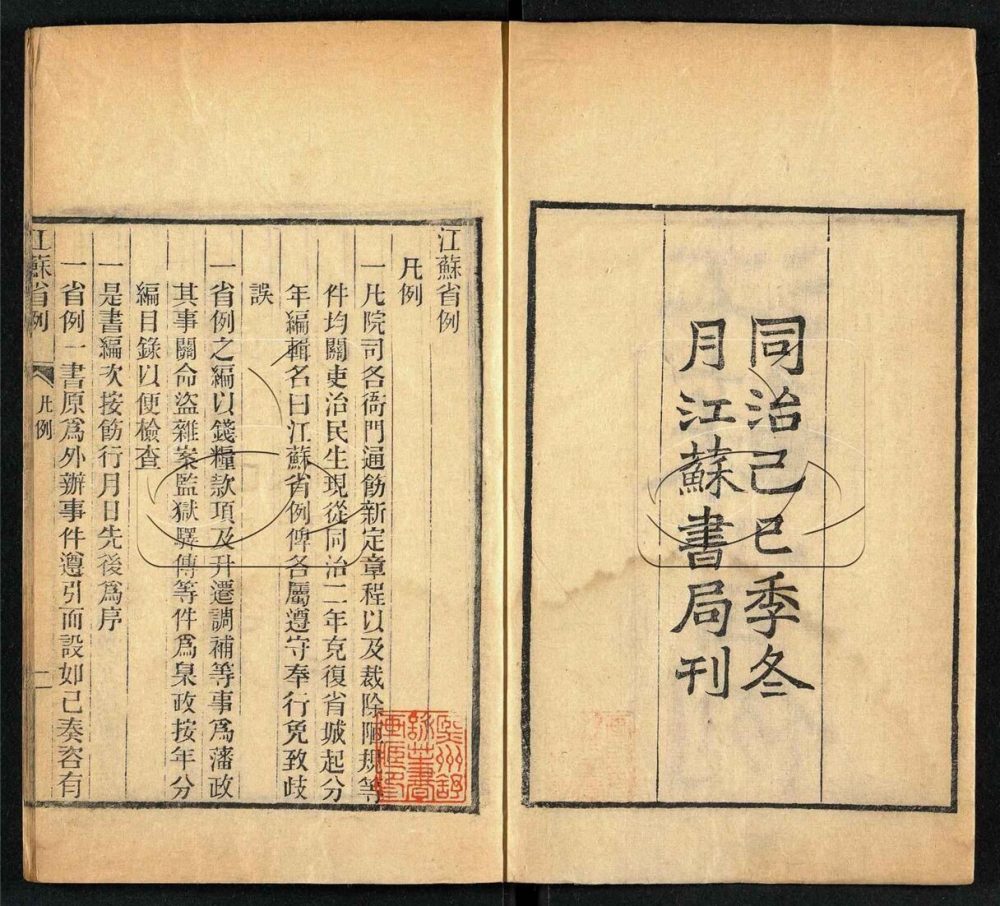 同治己巳季冬
月江蘇書局刊
江蘇省例
凡例
一凡院司各衙門通飭新定章程以及裁除陋規等
件均關吏治民生現從同治二年克復省城起分
年編輯名曰江蘇省例俾各屬遵守奉行免致歧
誤
一省例之編以錢糧款項及升遷調補等事爲藩政
其事關命盜雜案監獄驛傳等件爲臬政按年分
編目錄以便檢查
一是書編次按飭行月日先後爲序
一省例一書原爲外辦事件遵引而設如已奏咨有
江蘇省例
凡例